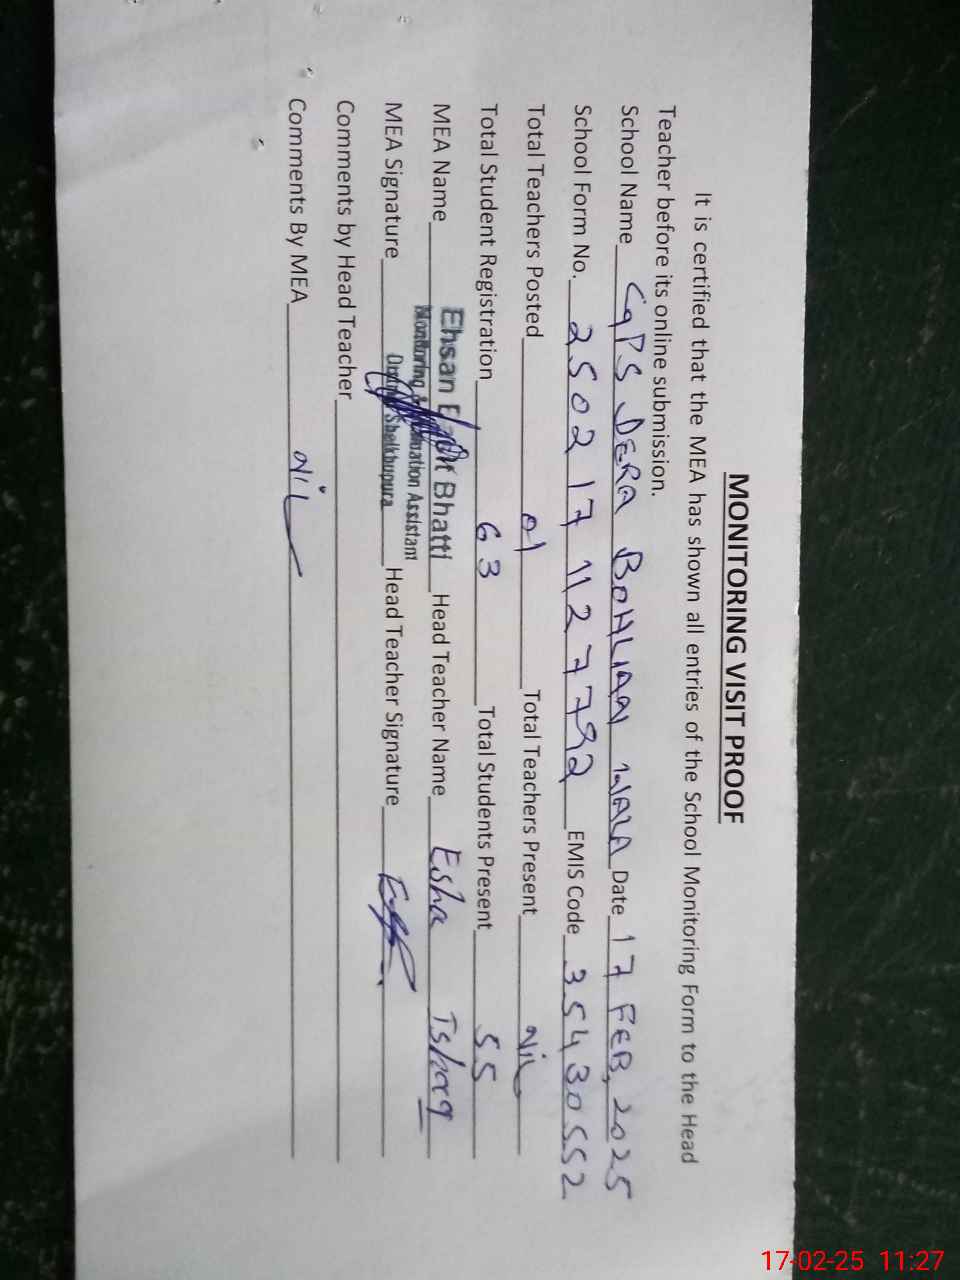 MONITORING VISIT PROOF
It is certified that the MEA has shown all entries of the School Monitoring Form to the Head
Teacher before its online submission.
School Name GPS DERA BOHLIAN WALA Date 17 FEB, 2025
School Form No. 2502171127792 EMIS Code 35430552
Total Teachers Posted 01 Total Teachers Present Nil
Total Student Registration 63 Total Students Present 55
MEA Name Ehsan Bhatti Head Teacher Name Esha Ishaq
Monitoring & Evaluation Assistant
MEA Signature Sheikhupura Head Teacher Signature
Comments by Head Teacher
Comments By MEA Nil
17-02-25 11:27